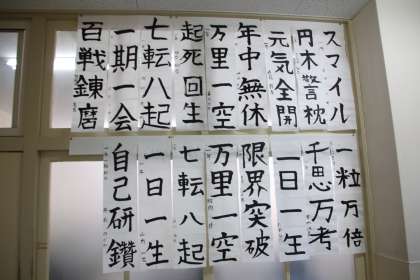 スマイル
円木警枕
元気全開
年中無休
万里一空
起死回生
七転八起
一期一会
百戦錬磨
一粒万倍
千思万考
一日一生
限界突破
万里一空
七転八起
一日一生
自己研鑽